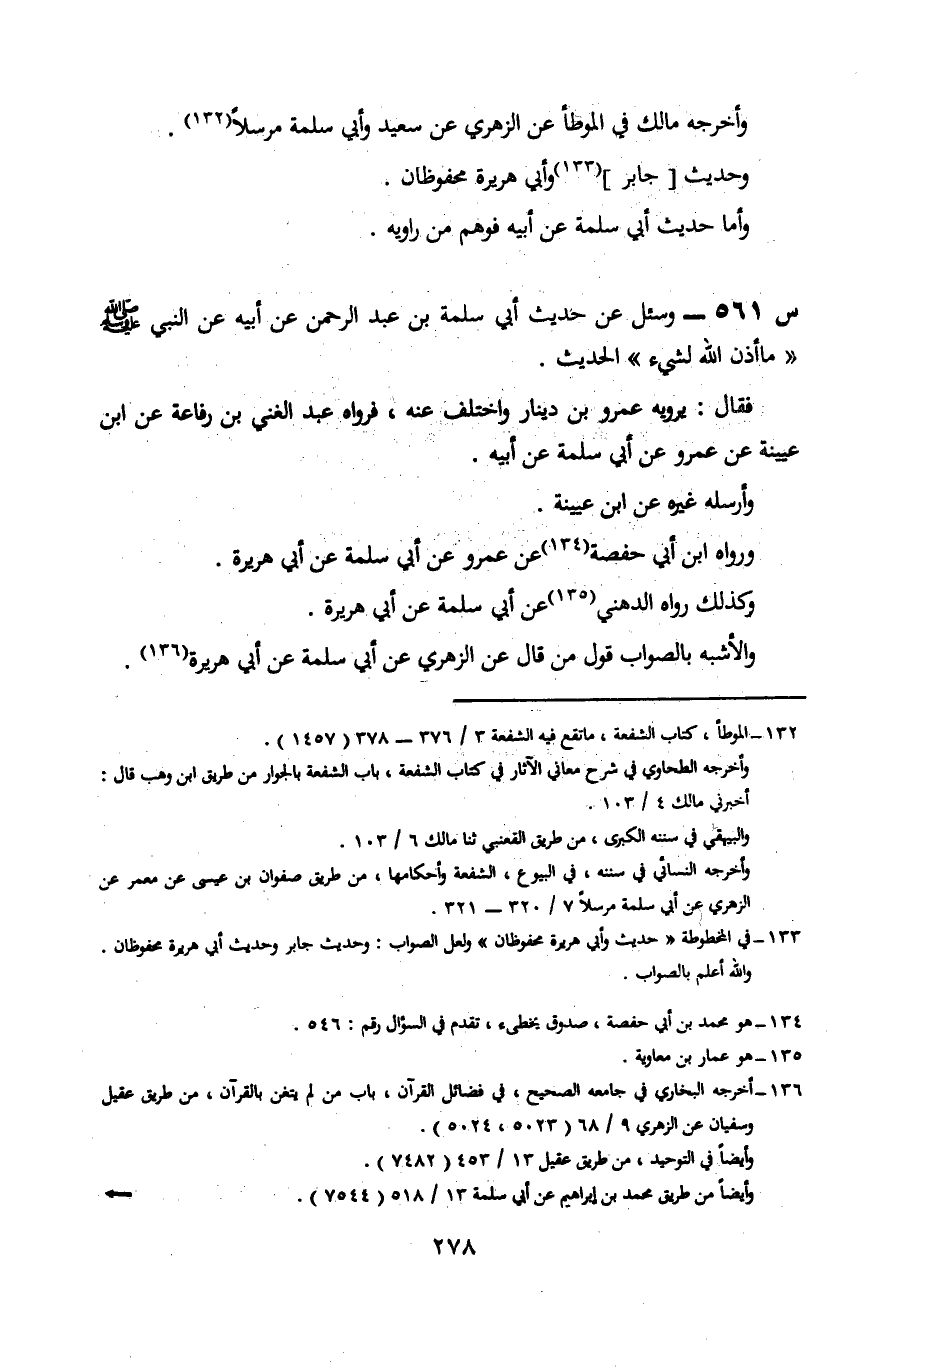 وأخرجه مالك في الموطأ عن الزهري عن سعيد وأبي سلمة مرسلاً(١٣٢) .
وحديث [ جابر ](١٣٣)وأبي هريرة محفوظان .
وأما حديث أبي سلمة عن أبيه فوهم من راويه .
س ٥٦١ ــ وسئل عن حديث أبي سلمة بن عبد الرحمن عن أبيه عن النبي ﷺ
« ماأذن الله لشيء » الحديث .
فقال : يرويه عمرو بن دينار واختلف عنه ، فرواه عبد الغني بن رفاعة عن ابن
عيينة عن عمرو عن أبي سلمة عن أبيه .
وأرسله غيره عن ابن عيينة .
ورواه ابن أبي حفصة(١٣٤)عن عمرو عن أبي سلمة عن أبي هريرة .
وكذلك رواه الدهني(١٣٥)عن أبي سلمة عن أبي هريرة .
والأشبه بالصواب قول من قال عن الزهري عن أبي سلمة عن أبي هريرة(١٣٦) .
١٣٢ــ الموطأ ، كتاب الشفعة ، ماتقع فيه الشفعة ٣ / ٣٧٦ ــ ٣٧٨ ( ١٤٥٧ ) .
وأخرجه الطحاوي في شرح معاني الآثار في كتاب الشفعة ، باب الشفعة بالجوار من طريق ابن وهب قال :
أخبرني مالك ٤ / ١٠٣ .
والبيهقي في سننه الكبرى ، من طريق القعنبي ثنا مالك ٦ / ١٠٣ .
وأخرجه النسائي في سننه ، في البيوع ، الشفعة وأحكامها ، من طريق صفوان بن عيسى عن معمر عن
الزهري عن أبي سلمة مرسلاً ٧ / ٣٢٠ ــ ٣٢١ .
١٣٣ــ في المخطوطة « حديث وأبي هريرة محفوظان » ولعل الصواب : وحديث جابر وحديث أبي هريرة محفوظان .
والله أعلم بالصواب .
١٣٤ــ هو محمد بن أبي حفصة ، صدوق يخطىء ، تقدم في السؤال رقم : ٥٤٦ .
١٣٥ــ هو عمار بن معاوية .
١٣٦ــ أخرجه البخاري في جامعه الصحيح ، في فضائل القرآن ، باب من لم يتغن بالقرآن ، من طريق عقيل
وسفيان عن الزهري ٩ / ٦٨ ( ٥٠٢٣ ، ٥٠٢٤ ) .
وأيضاً في التوحيد ، من طريق عقيل ١٣ / ٤٥٣ ( ٧٤٨٢ ) .
وأيضاً من طريق محمد بن إبراهيم عن أبي سلمة ١٣ / ٥١٨ ( ٧٥٤٤ ) . ←
٢٧٨